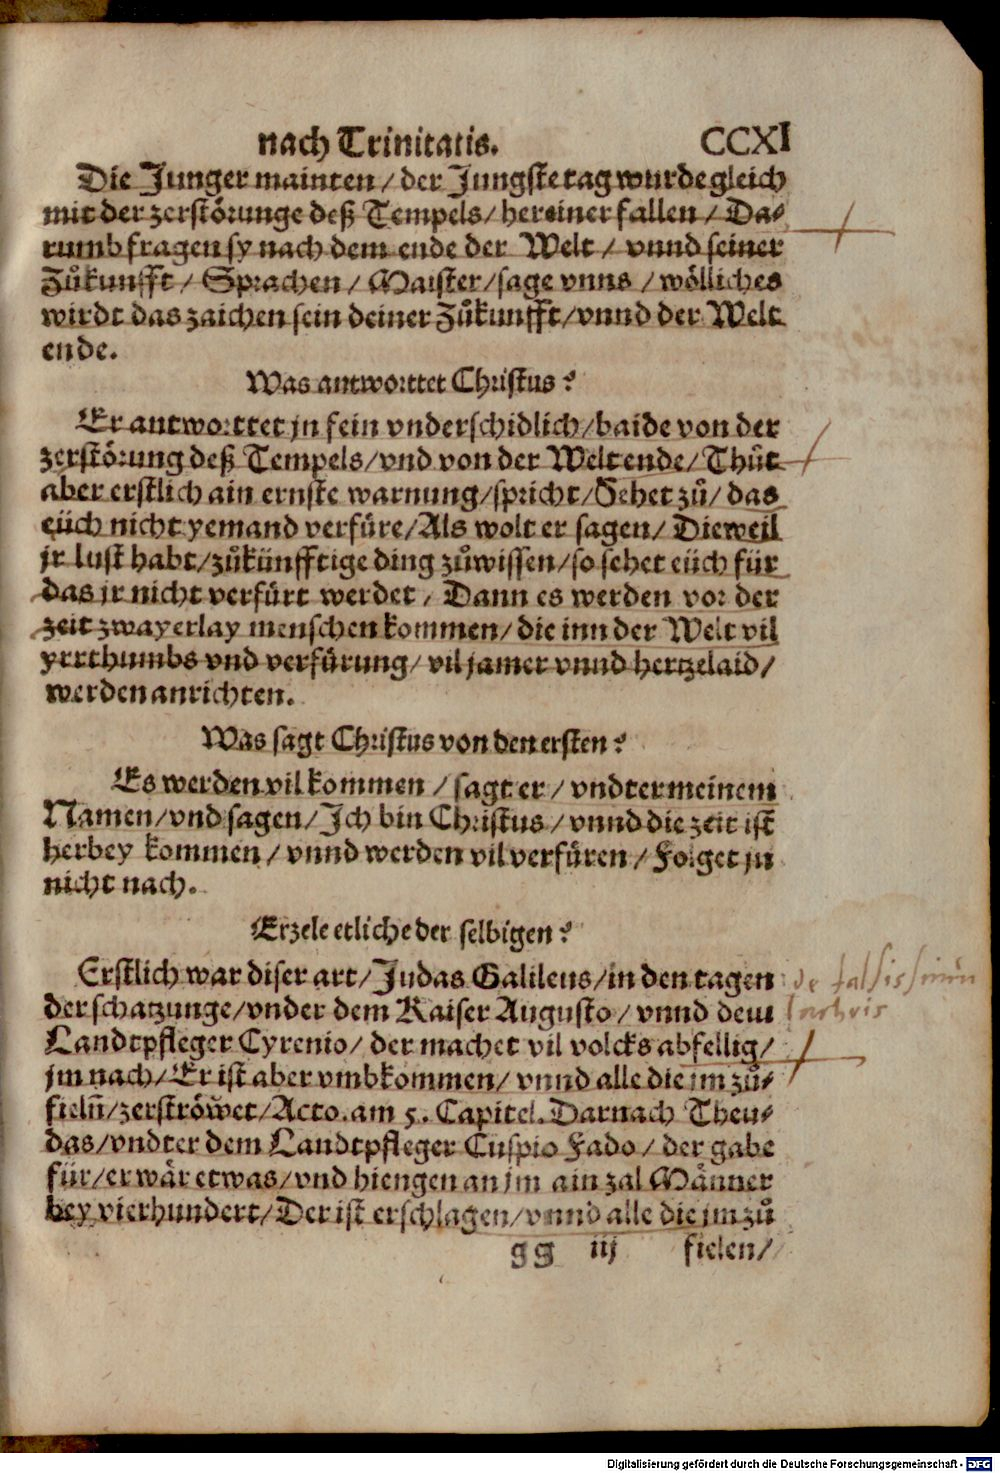 nach Trinitatis. CCXI
Die Junger mainten / der Jungste tag wurde gleich
mit der zerstörunge deß Tempels / hereiner fallen / Da⸗
rumb fragen sy nach dem ende der Welt / vnnd seiner
Zůkunfft / Sprachen / Maister / sage vnns / wölliches
wirdt das zaichen sein deiner Zůkunfft / vnnd der Welt
ende.
Was antworttet Christus?
Er antworttet jn fein vnderschidlich / baide von der
zerstörung deß Tempels / vnd von der Welt ende / Thůt
aber erstlich ain ernste warnung / spricht / Sehet zů / das
eüch nicht yemand verfüre / Als wolt er sagen / Dieweil
jr lust habt / zůkünfftige ding zůwissen / so sehet eüch für
das jr nicht verfürt werdet / Dann es werden vor der
zeit zwayerlay menschen kommen / die inn der Welt vil
yrrthumbs vnd verfürung / vil jamer vnnd hertzelaid /
werden anrichten.
Was sagt Christus von den ersten?
Es werden vil kommen / sagt er / vndter meinem
Namen / vnd sagen / Ich bin Christus / vnnd die zeit ist
herbey kommen / vnnd werden vil verfüren / Folget jn
nicht nach.
Erzele etliche der selbigen?
Erstlich war diser art / Judas Galileus / in den tagen
der schatzunge / vnder dem Kaiser Augusto / vnnd dem
Landtpfleger Cyrenio / der machet vil volcks abfellig /
jm nach / Er ist aber vmbkommen / vnnd alle die jm zů⸗
fieln̄ / zerströwet / Acto. am 5. Capitel. Darnach Theu⸗
das / vndter dem Landtpfleger Cuspio Fado / der gabe
für / er wär etwas / vnd hiengen an jm ain zal Männer
bey vierhundert / Der ist erschlagen / vnnd alle die jm zů
gg iij fielen /
de
Digitalisierung gefördert durch die Deutsche Forschungsgemeinschaft - DFG